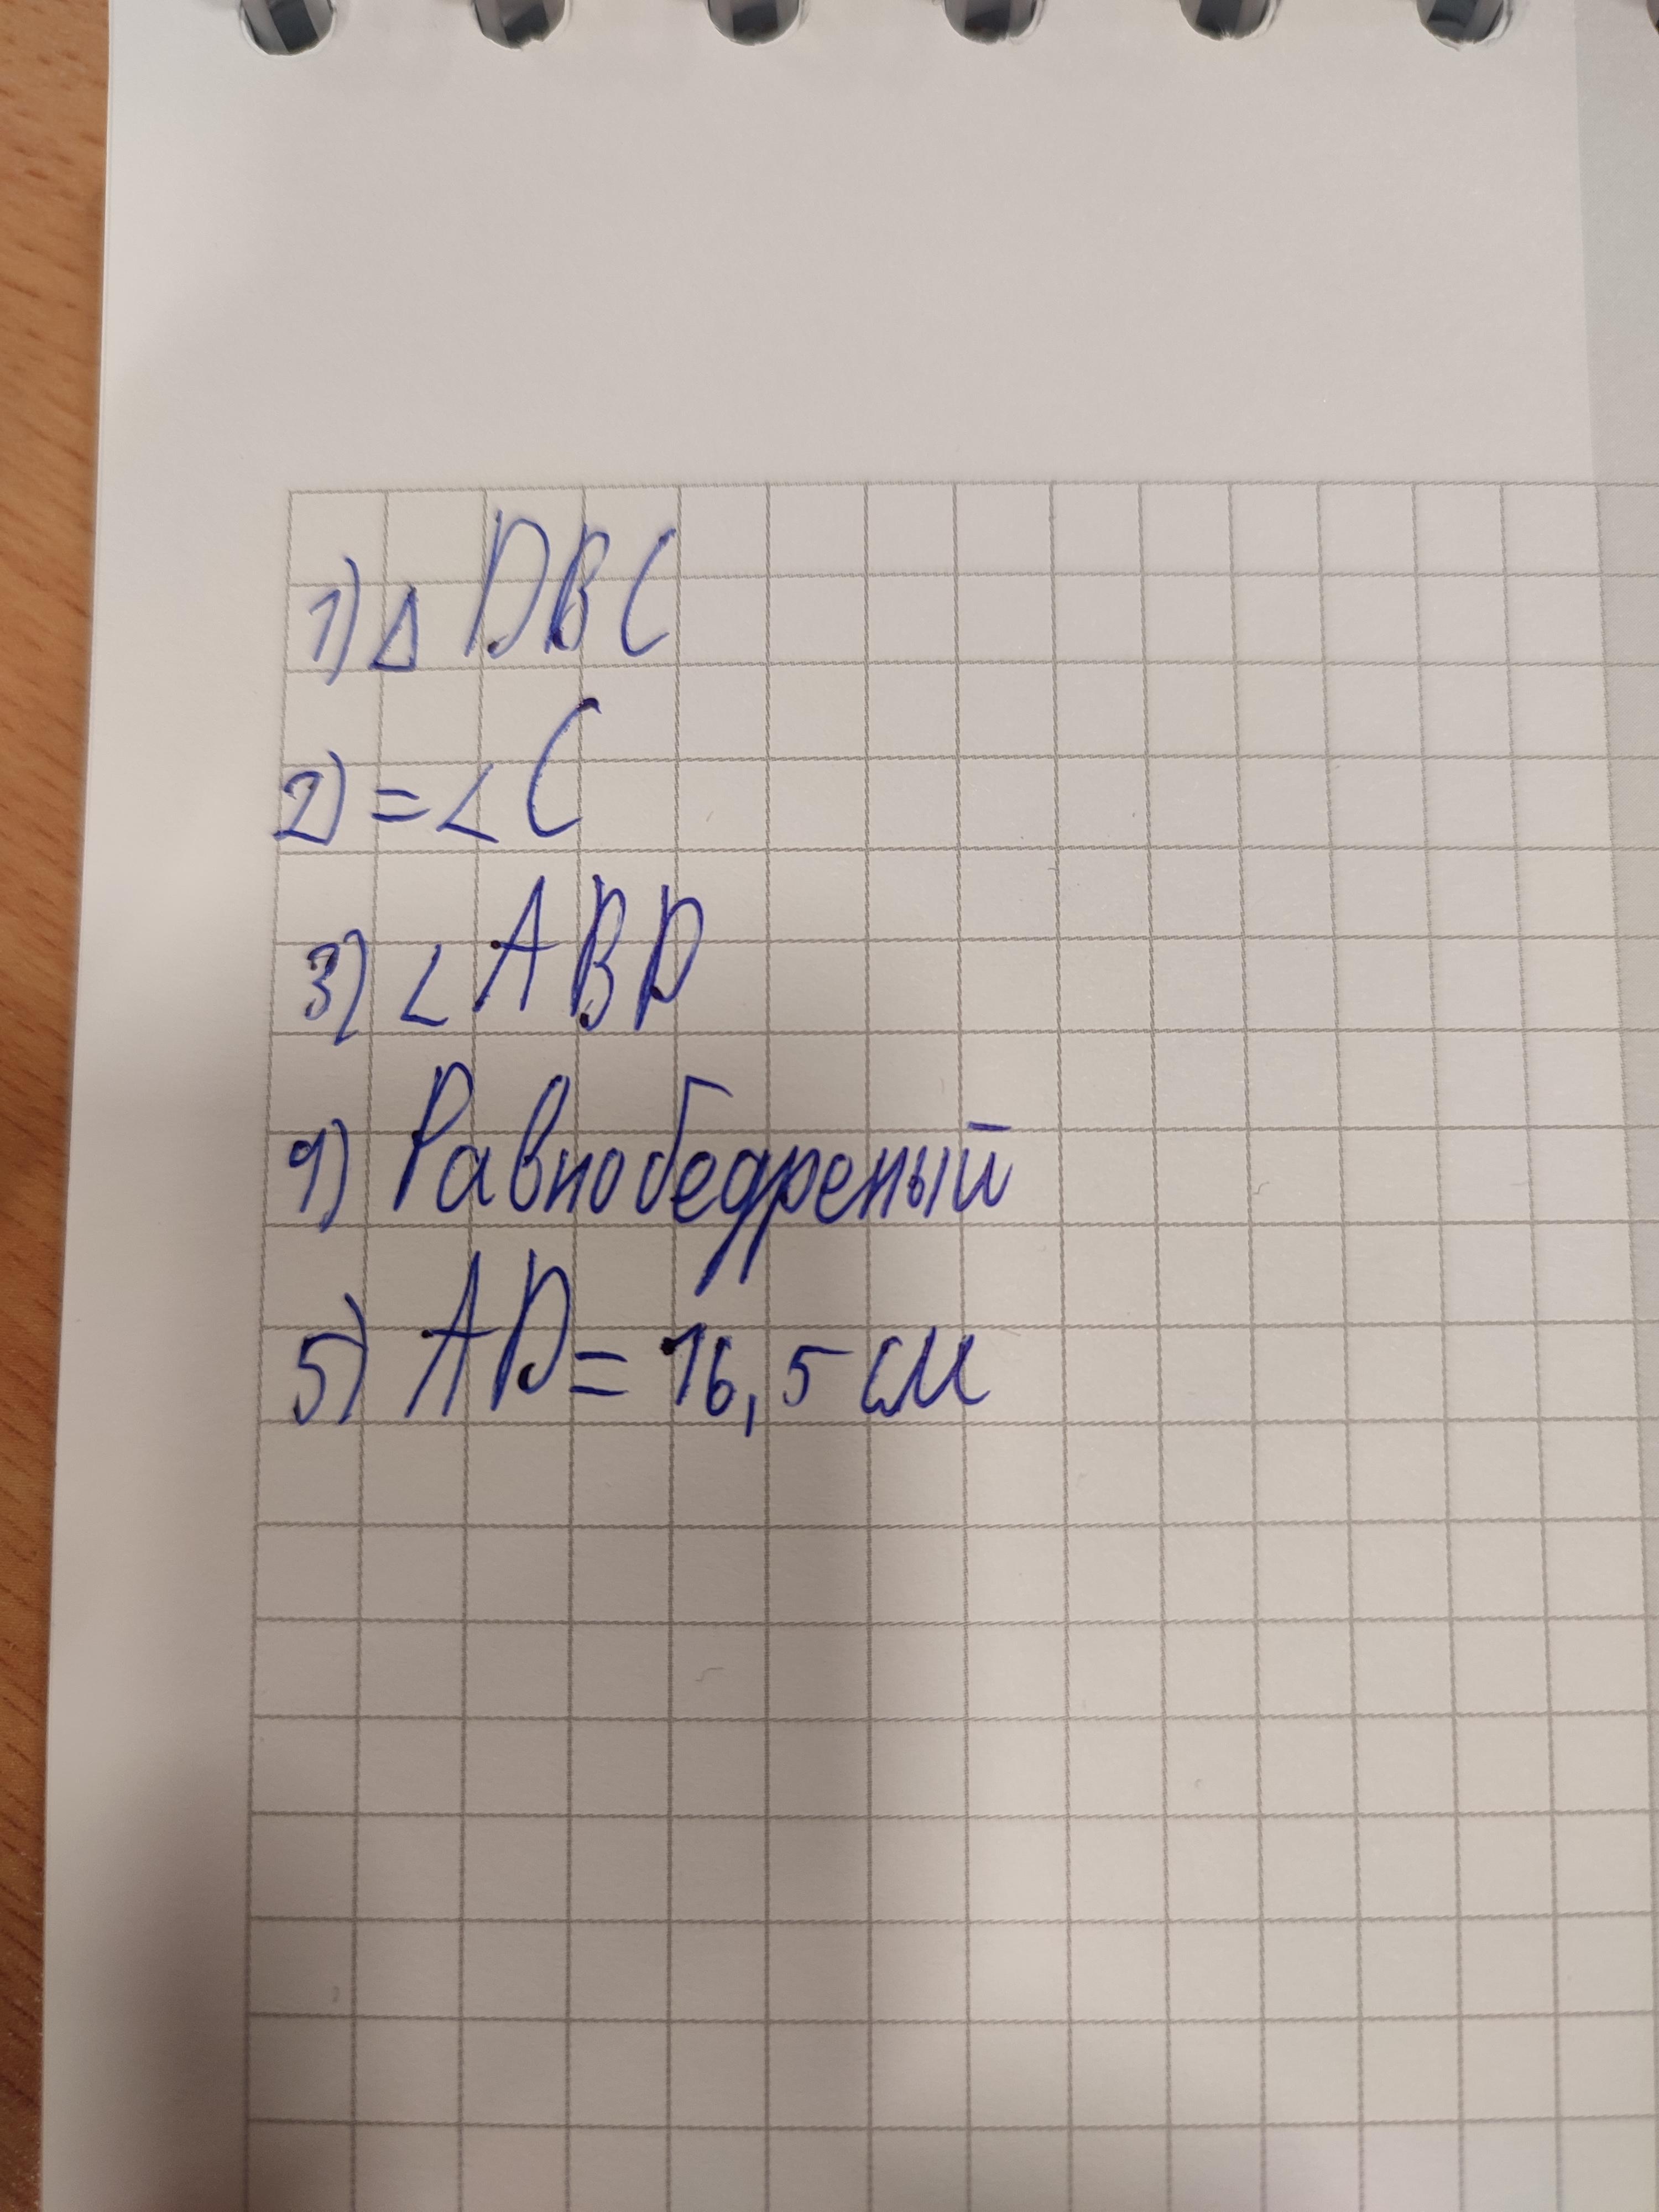 1) △ DBC
2) = ∠ C
3) ∠ ABD
4) Равнобедреный
5) AD = 16,5 см